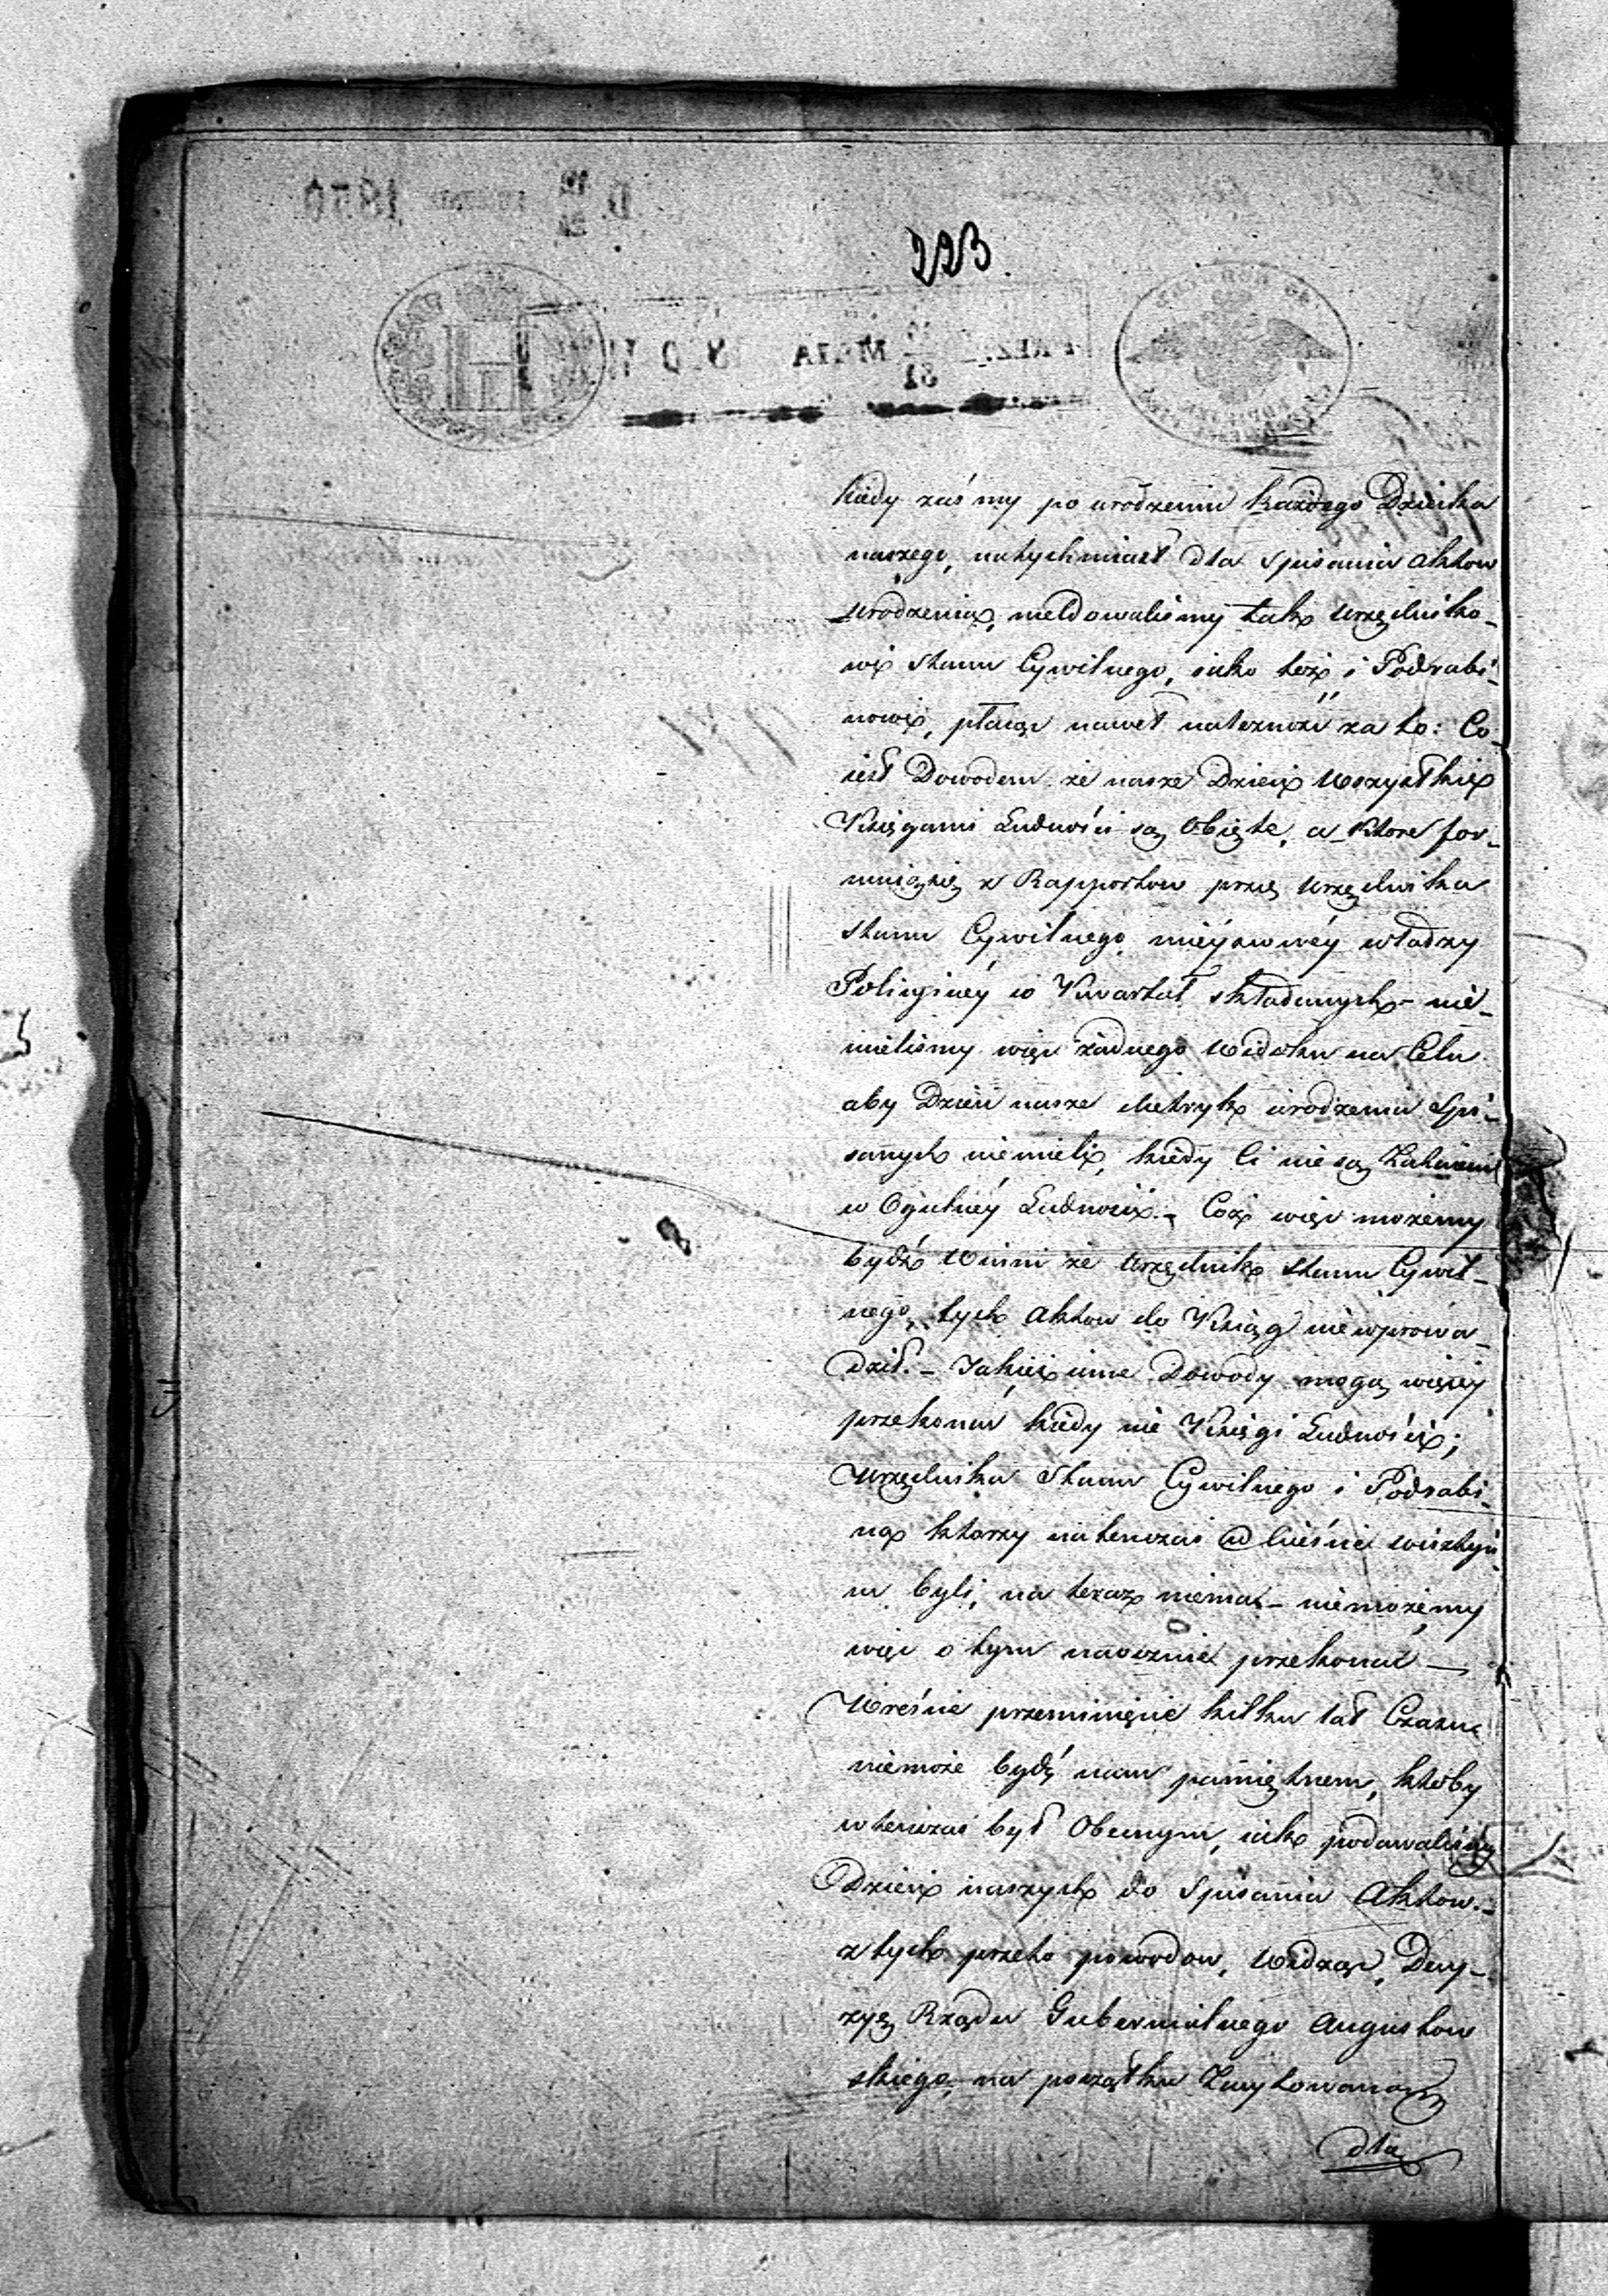 223
kiedy zaś my po urodzeniu każdego Dziecka
naszego, natychmiast dla spisania aktow
urodzenia, meldowaliśmy tak Urzędniko-
wi stanu Cywilnego, iako też i Podrabi-
nowi, płacąc nawet należność za to: Co
iest Dowodem że nasze Dzieci Wszystkie
Księgami Ludności są Obięte, a ktore for-
muią się z Rapportow przez Urzędnika
stanu Cywilnego mieyscowéy władzy
Policyinéy w Kwartał składanych - nie-
mieliśmy więc żadnego Widoku na Celu
aby Dzieci nasze Metryk urodzenia Spi-
sanych niemieli, kiedy Ci nie są
w Ogulnéy Ludności. - Coż więc możemy
bydź Winni że Urzędnik stanu Cywil-
nego, tych Aktow do Ksiąg nie wprowa-
dził. - Jakieź inne Dowody mogą więcéy
przekonać kiedy nie Księgi Ludności;
Urzędnika Stanu Cywilnego i Podrabi-
na ktorzy natenczas w Mieście
byli, na teraz niema - niemożemy
więc o tym naocznie przekonać -
Wreśnie przeminięcie kilku lat Czasu
niemoże bydź nam pamiętnem, ktoby
wtenczas był Obecnym, iak podawaliśmy
Dzieci naszych do Spisania Aktow. -
z tych przeto powodow, Widząc, Decy-
zyą Rządu Gubernialnego Augustow
skiego, na początku Zacytowaną
dla